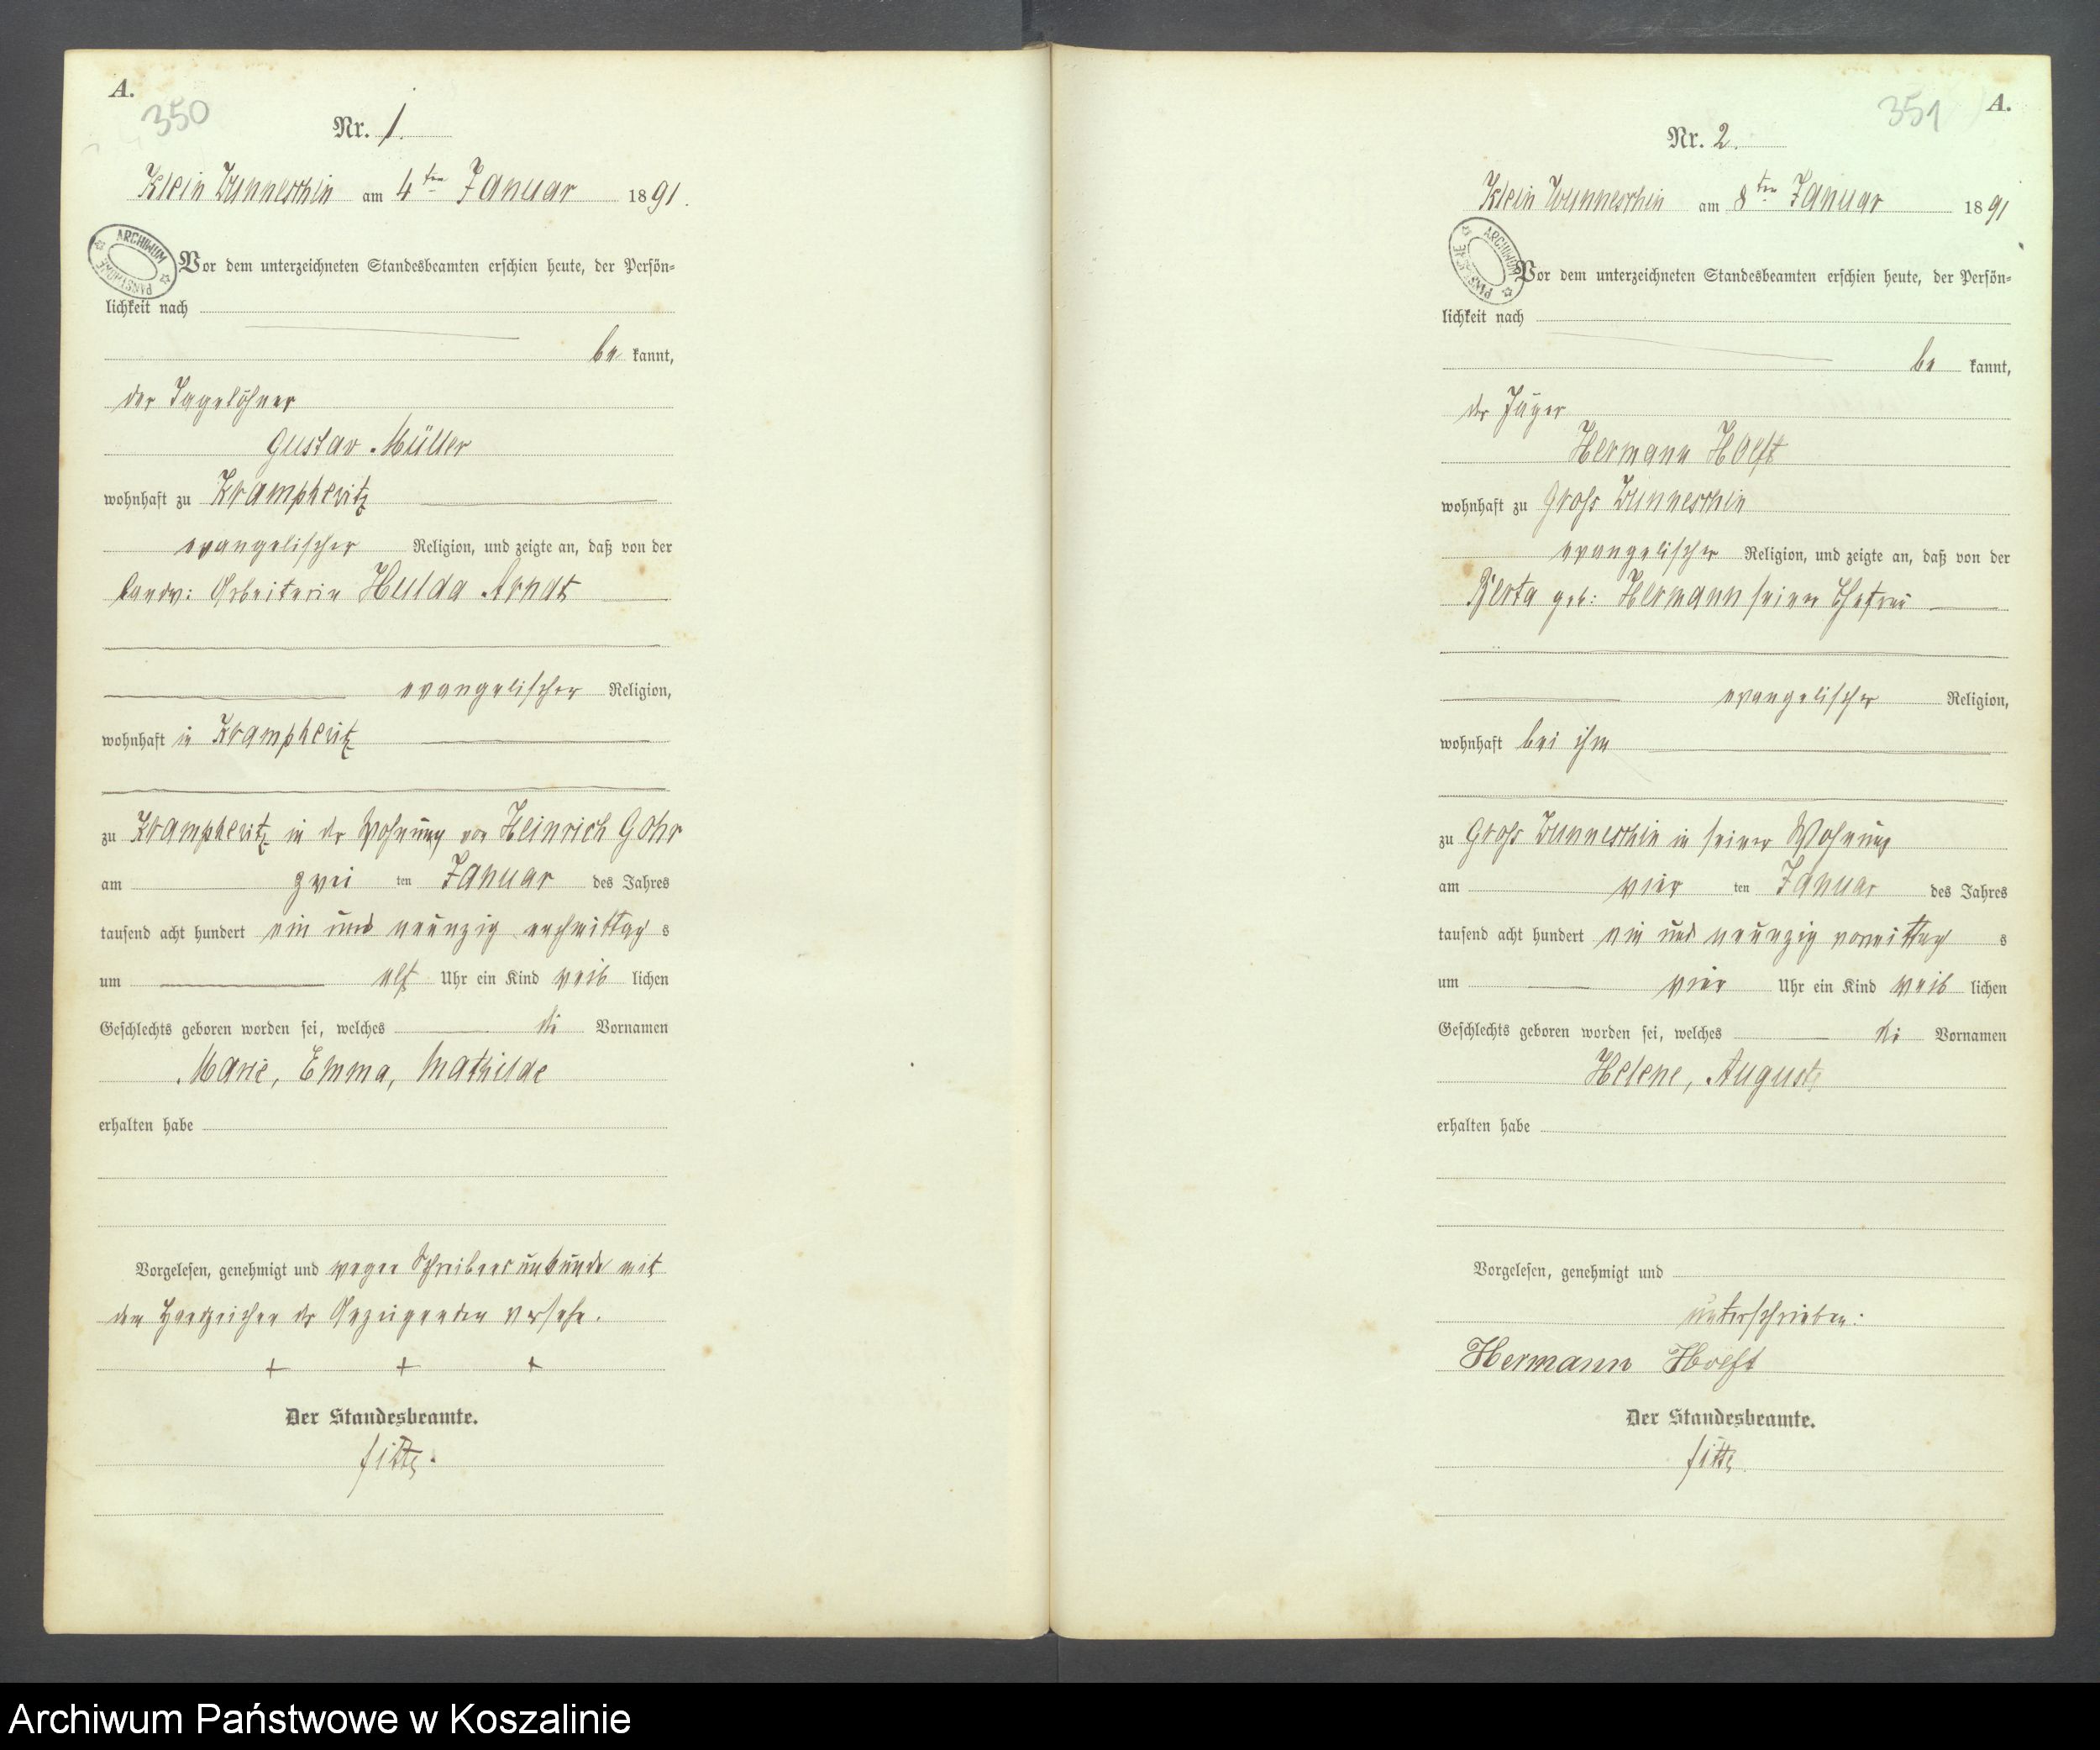 A.
350
Nr. 1.
Klein Wunneschin am 4ten Januar 1891.
ARCHIWUM PAŃSTWOWE
Vor dem unterzeichneten Standesbeamten erschien heute, der Persön-
lichkeit nach
be kannt,
der Tagelöhner
Gustav Müller
wohnhaft zu Krampkewitz
evangelischer Religion, und zeigte an, daß von der
landw: Arbeiterin Hulda Arndt
evangelischer Religion,
wohnhaft in Krampkewitz
zu Krampkewitz in der Wohnung von Heinrich Gohr
am zwei ten Januar des Jahres
tausend acht hundert ein und neunzig nachmittag s
um elf Uhr ein Kind weib lichen
Geschlechts geboren worden sei, welches die Vornamen
Marie, Emma, Mathilde
erhalten habe
Vorgelesen, genehmigt und wegen Schreibensunkunde mit
den Handzeichen des Anzeigenden versehen.
+ + +
Der Standesbeamte.
A.
351
Nr. 2.
Klein Wunneschin am 8ten Januar 1891
ARCHIWUM
Vor dem unterzeichneten Standesbeamten erschien heute, der Persön-
lichkeit nach
be kannt,
der Jäger
Hermann Hoeft
wohnhaft zu Groß Wunneschin
evangelischer Religion, und zeigte an, daß von der
Berta geb: Hermann seiner Ehefrau
evangelischer Religion,
wohnhaft bei ihm
zu Groß Wunneschin in seiner Wohnung
am vier ten Januar des Jahres
tausend acht hundert ein und neunzig vormittag s
um vier Uhr ein Kind weib lichen
Geschlechts geboren worden sei, welches die Vornamen
Helene, Auguste
erhalten habe
Vorgelesen, genehmigt und
unterschrieben:
Hermann Hoeft
Der Standesbeamte.
Archiwum Państwowe w Koszalinie